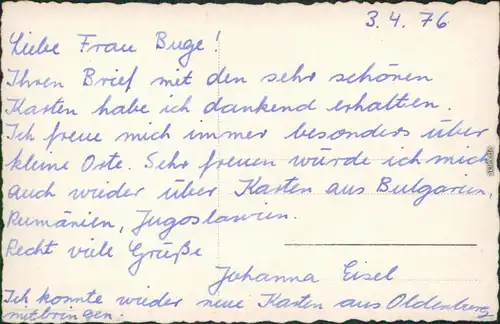 3.4.76
Liebe Frau Buge!
Ihren Brief met den sehr schönen
Karten habe ich dankend erhalten.
Ich freue mich immer besonders über
kleine Orte. Sehr freuen würde ich mich
auch wieder über Karten aus Bulgarien,
Rumänien, Jugoslawien.
Recht viele Grüße
Johanna Eisel
Ich konnte wieder neue Karten aus Oldenburg
mitbringen.